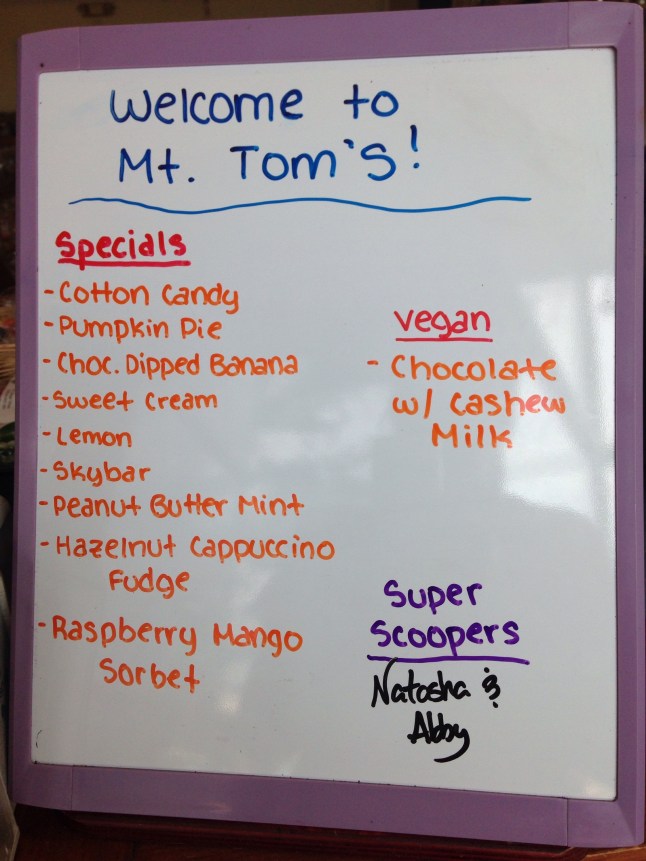 Welcome to
Mt. Tom's!
Specials
- Cotton Candy
- Pumpkin Pie
- Choc. Dipped Banana
- Sweet Cream
- Lemon
- Skybar
- Peanut Butter Mint
- Hazelnut Cappuccino
Fudge
- Raspberry Mango
Sorbet
Vegan
- Chocolate
w/ Cashew
Milk
Super
Scoopers
Natasha &
Abby